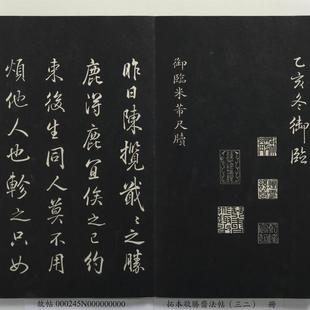 乙亥冬御臨
御臨米芾尺牘
昨日陳攬戢戢之勝
鹿得鹿宜俟之已約
束後生同人莫不用
煩他人也軫之只如
故帖 000245N000000000
拓本敬勝齋法帖（三二） 冊